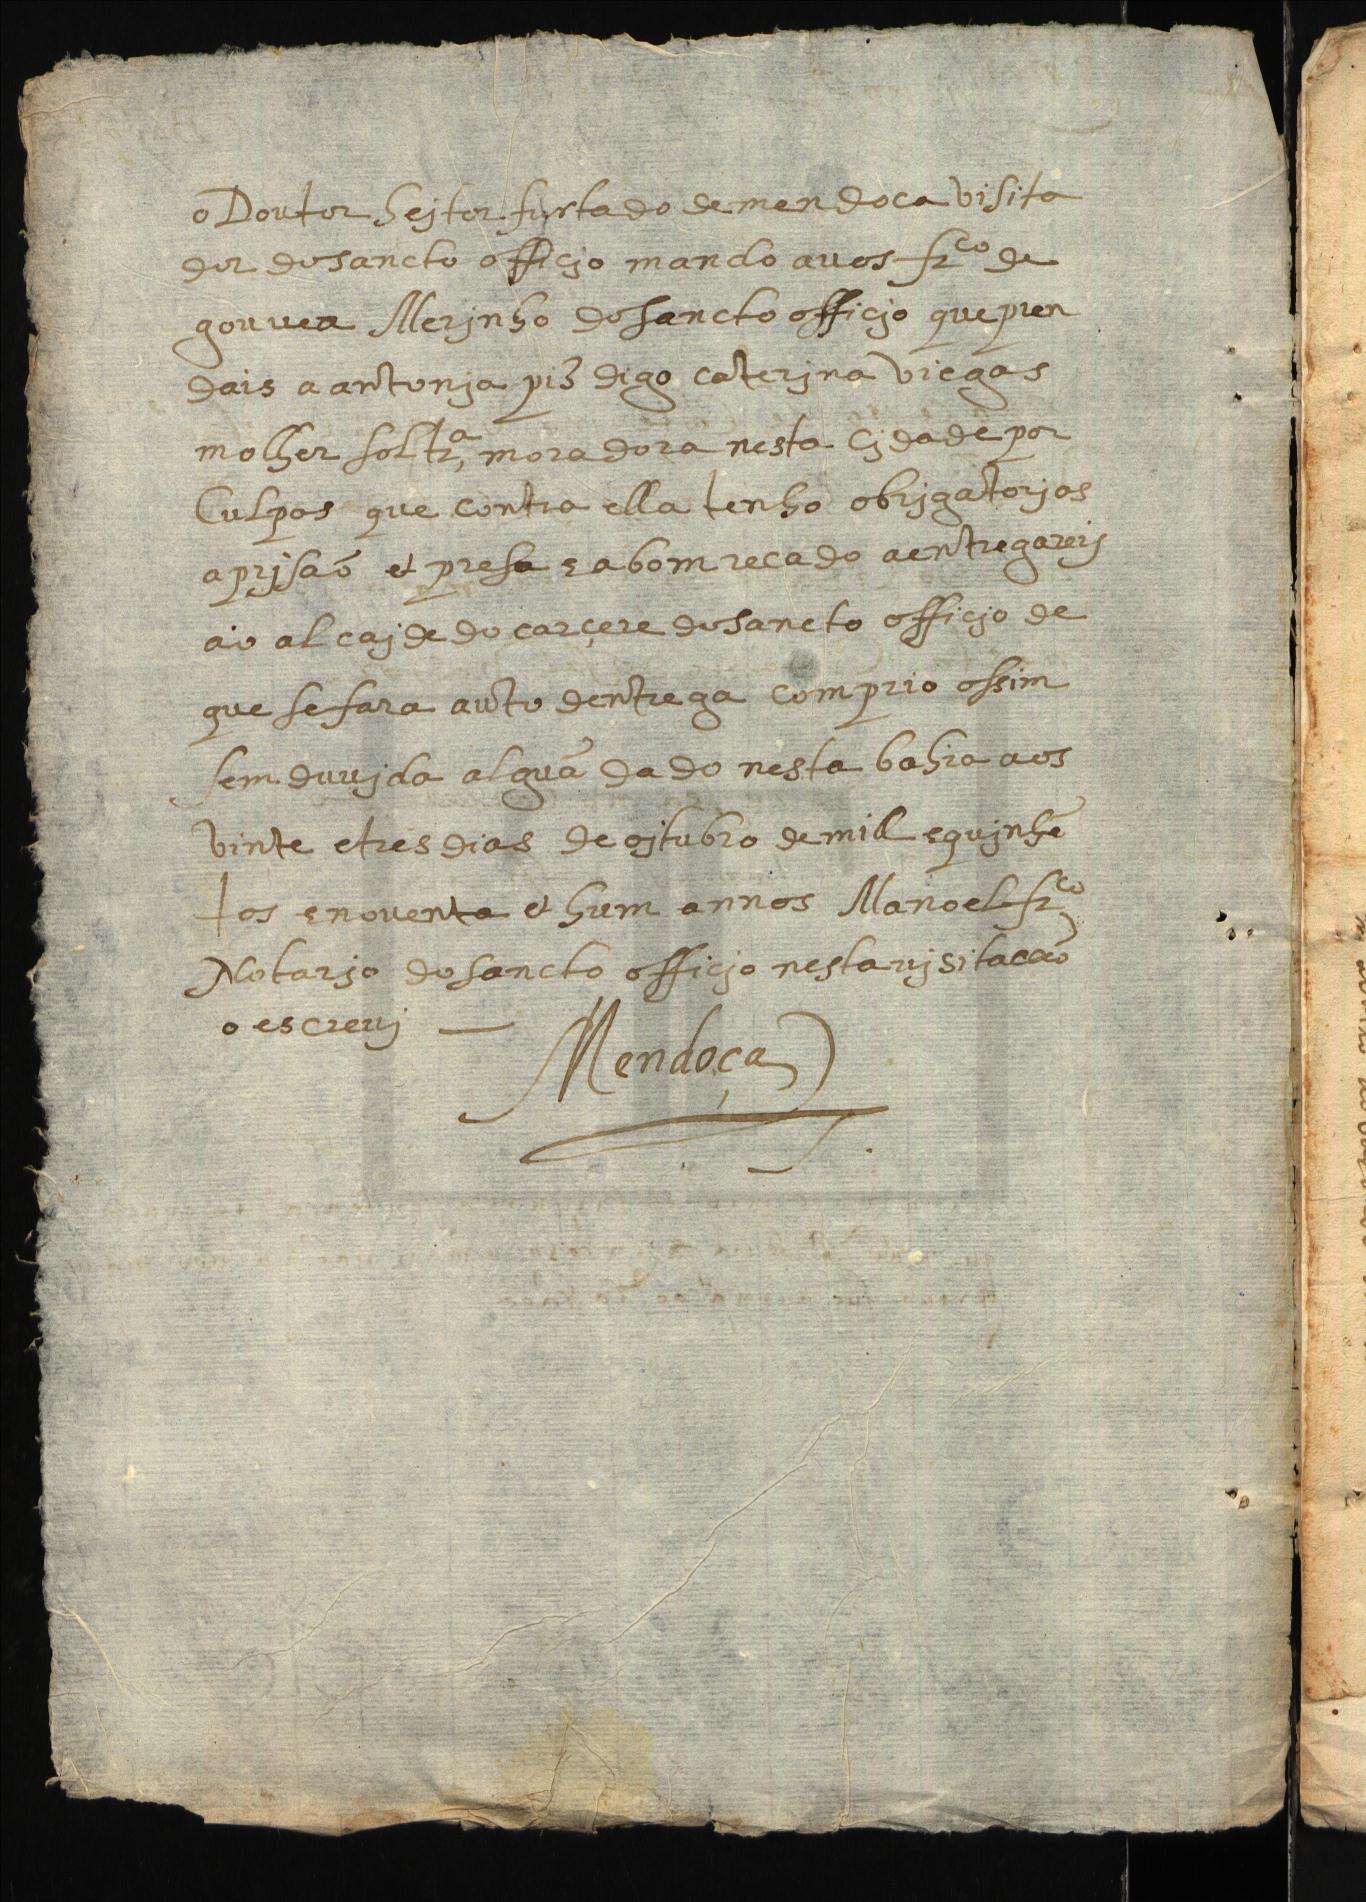 o Doutor hejtor furtado de mendoca visita
dor do sancto officjo mando a vos frco de
gouvea Merjnho do sancto officjo que pren
dais a antonja pis digo caterjna viegas
molher soltra, moradora nesta Cjdade por
Culpas que contra ella tenho obrjgatorjas
a prjsaõ et presa e a bom recado a entregareis
ao alcajde do carçere do sancto officjo de
que se fara auto dentrega comprio assim
sem duvjda alguã dado nesta bahia aos
vinte e tres dias de ojtubro de mill e qujnhẽ
tos e noventa et hum annos Manoel frco
Notarjo do sancto officjo nesta vjsitacaõ
o escrevj —
Mendoça